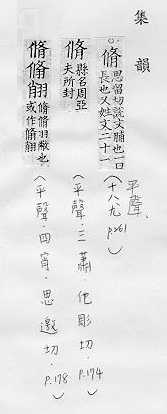 集韻
脩 思留切說文脯也一曰
長也又姓文二十一
平聲、
〈十八尤 p261〉
脩 縣名周亞
夫所封
〈平聲·三蕭 他彫切·P.174〉
脩脩羽敝也
或作
〈平聲·四宵·思邀切·P.178〉